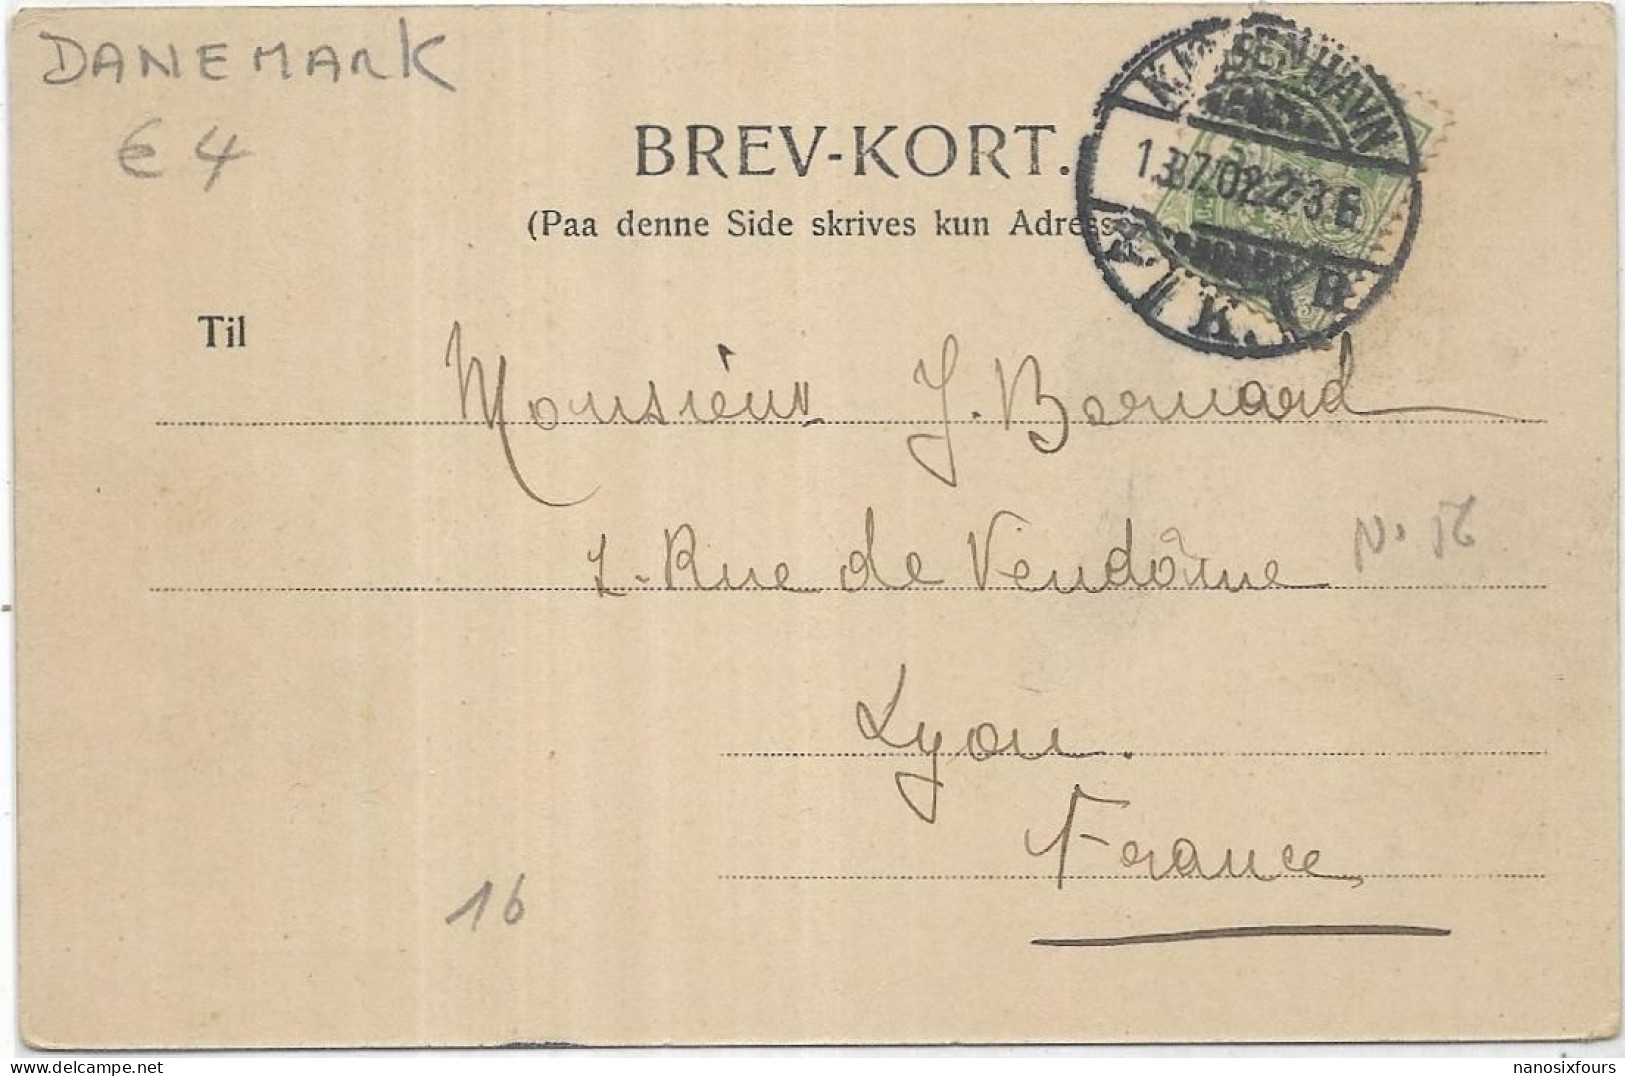 DANEMARK
€ 4
BREV-KORT.
(Paa denne Side skrives kun Adresse
KJØBENHAVN
K. B
Til
Monsieur J. Bernard
1. Rue de Vendôme N. 16
Lyon.
France
16
nanosixfours